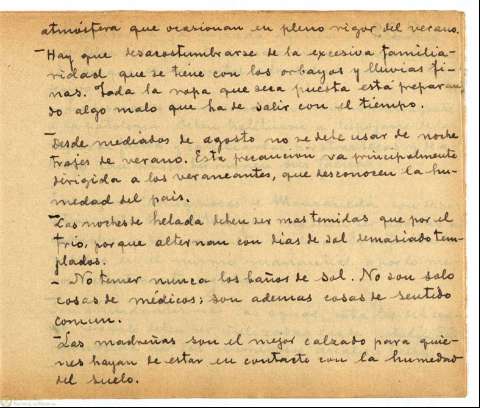 atmósfera que ocasionan en pleno rigor del verano.
- Hay que desacostumbrarse de la excesiva familia-
ridad que se tiene con los orbayos y lluvias fi-
nas. Toda la ropa que sea puesta está preparan-
do algo malo que ha de salir con el tiempo.
- Desde mediados de agosto no se debe usar de noche
trajes de verano. Esta precaucion va principalmente
dirigida a los veraneantes, que desconocen la hu-
medad del pais.
- Las noches de helada deben ser mas temidas que por el
frio, porque alternan con dias de sol demasiado tem-
plados.
- No temer nunca los baños de sol. No son solo
cosas de medicos; son ademas cosas de sentido
comun.
- Las madreñas son el mejor calzado para quie-
nes hayan de estar en contacto con la humedad
del suelo.